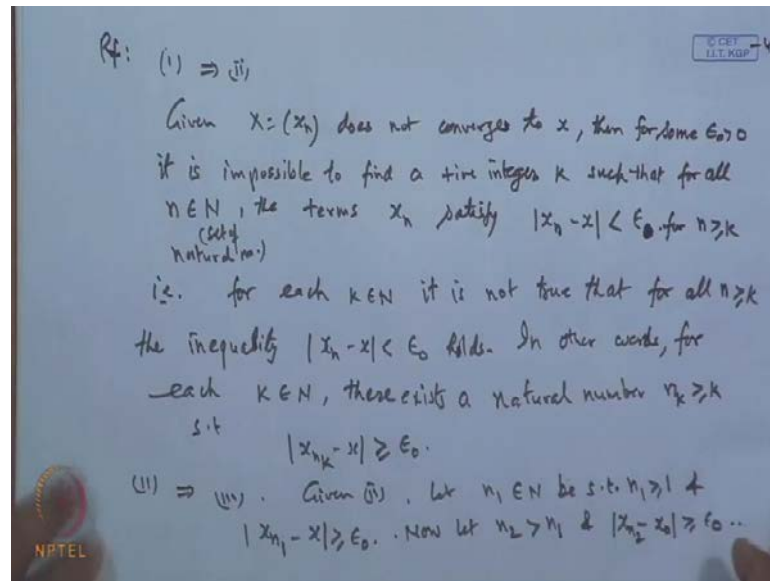 Pf:
© CET
I.I.T. KGP
(i) ⇒ (ii)
Given X = (xn) does not converges to x, then for some ϵ0>0
it is impossible to find a +ive integer K such that for all
n ∈ N, the terms xn satisfy |xn - x| < ϵ0 for n ≥ K
(set of
natural no.)
i.e. for each K ∈ N it is not true that for all n ≥ K
the inequality |xn - x| < ϵ0 holds. In other words, for
each K ∈ N, there exists a natural number nk ≥ K
s.t
|xnk - x| ≥ ϵ0.
(ii) ⇒ (iii). Given (ii), Let n1 ∈ N be s.t. n1 ≥ 1 &
|xn1 - x| ≥ ϵ0. Now let n2 > n1 & |xn2 - x0| ≥ ϵ0 ..
NPTEL